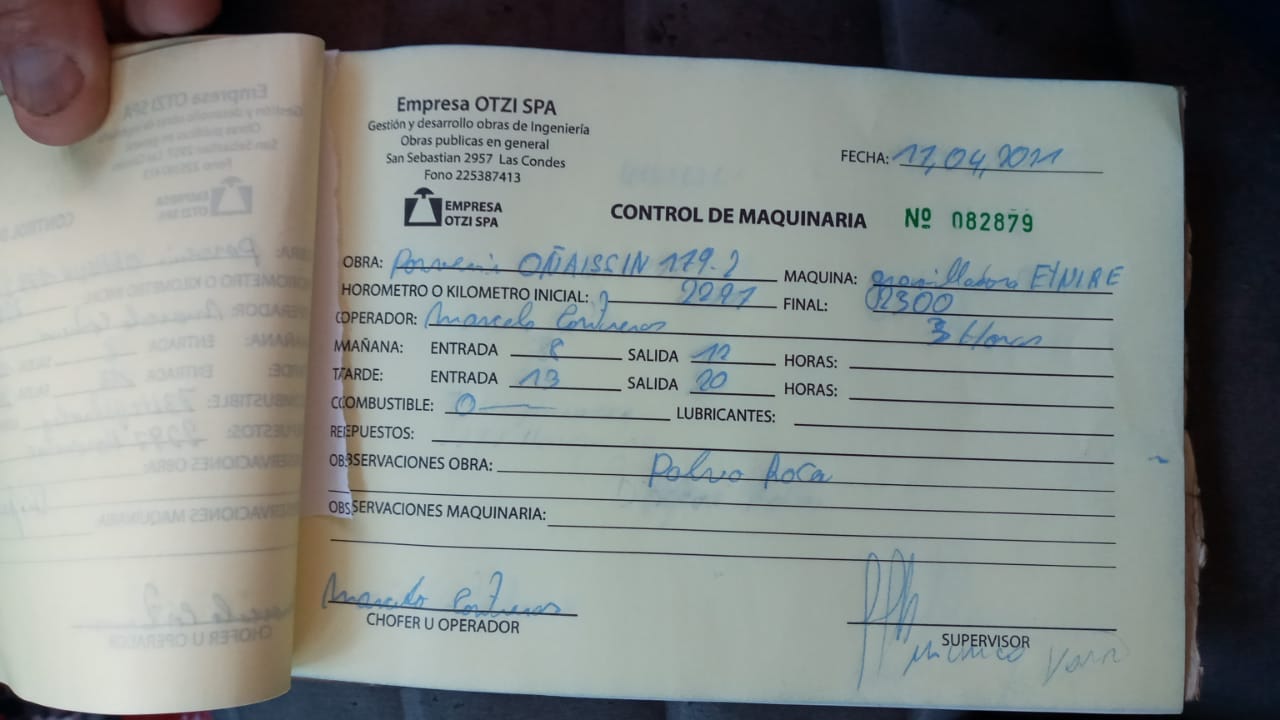 Empresa OTZI SPA
Gestión y desarrollo obras de Ingeniería
Obras publicas en general
San Sebastian 2957 Las Condes
Fono 225387413
EMPRESA
OTZI SPA
FECHA: 17,04,2021
CONTROL DE MAQUINARIA Nº 082879
OBRA: Porvenir OÑAISSIN 179.2 MAQUINA:
HOROMETRO O KILOMETRO INICIAL: 2297 FINAL: 02300
OPERADOR: Marcelo Contreras 3 Horas
MAÑANA: ENTRADA 8 SALIDA 12 HORAS:
TARDE: ENTRADA 13 SALIDA 20 HORAS:
COMBUSTIBLE: 0 LUBRICANTES:
REPUESTOS:
OBSERVACIONES OBRA: Polvo Roca
OBSERVACIONES MAQUINARIA:
Marcelo Contreras
CHOFER U OPERADOR
SUPERVISOR